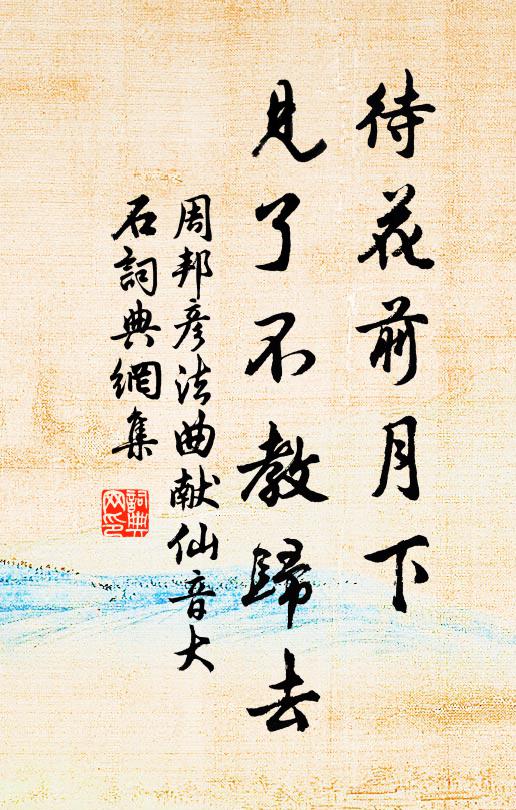 待花前月下
見了不教歸去
周邦彦法曲献仙音大
石詞典網集
詞典网印